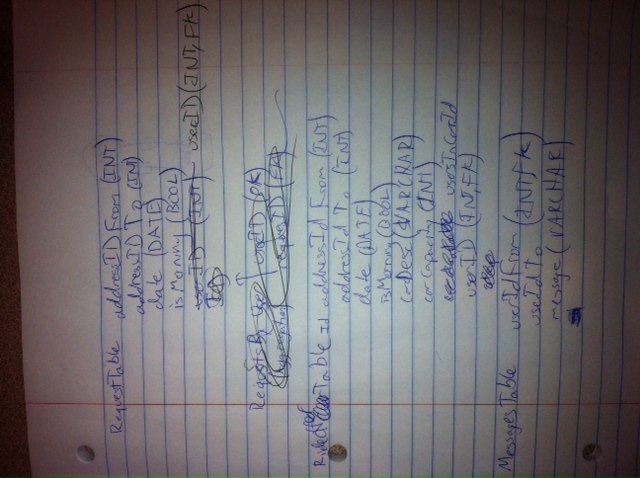 RequestTable addressID From (INT)
addressID To (INT)
date (DATE)
isMorning (BOOL)
userID (INT) userID (INT, FK)
Requests By
userID (FK)
requestID (FK)
Table addressId From (INT)
addressId To (INT)
date (DATE)
isMorning (BOOL)
carDesc (VARCHAR)
carCapacity (INT)
usersInCarId
userID (INT, FK)
MessagesTable userIdFrom (INT, FK)
userIdTo (INT, FK)
message (VARCHAR)